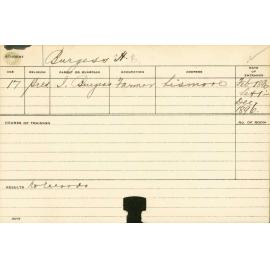 STUDENT Burgess H.
AGE RELIGION PARENT OR GUARDIAN OCCUPATION ADDRESS DATE OF ENTRANCE
17 Pres. J. Burgess Farmer Lismore Feb. 1896
Dec. 1896
COURSE OF TRAINING NO. OF ROOM
RESULTS No records